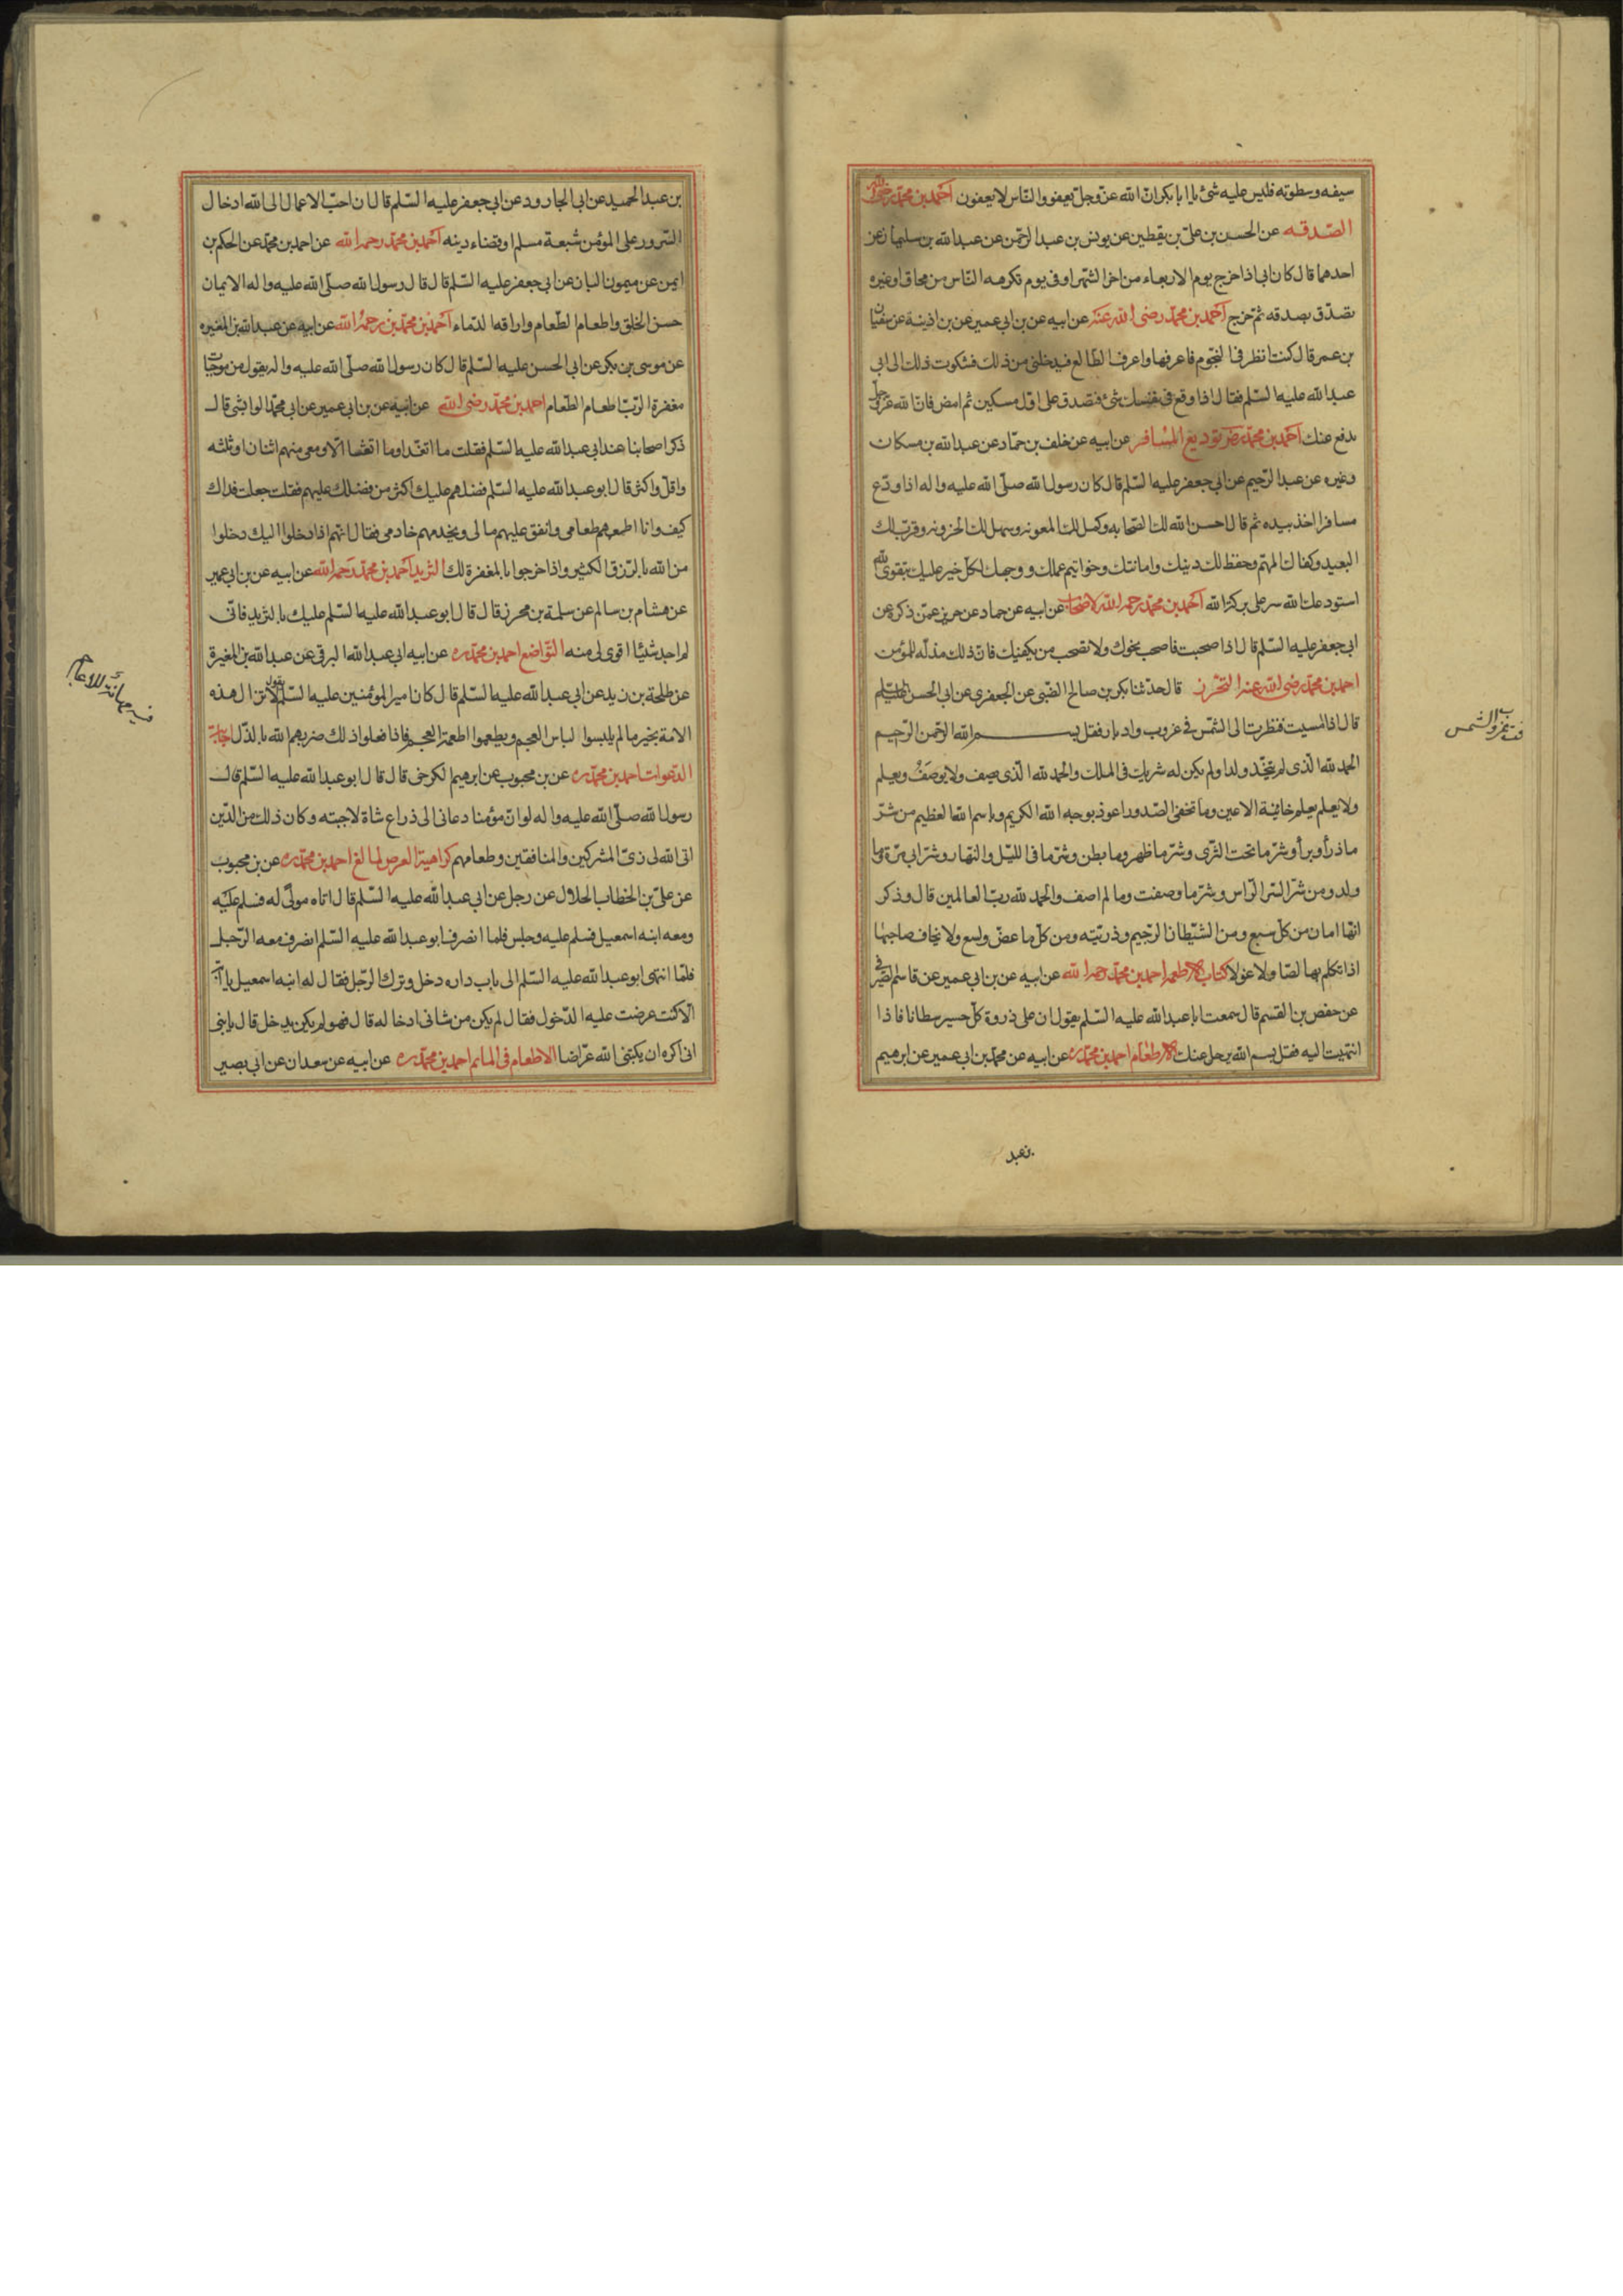 سيفه وسطوته فليس عليه شئ يا ابا بكر ان الله عز وجل يعفو والناس لا يعفون احمد بن محمد رضى الله
الصدقه عن الحسن بن على بن يقطين عن يونس بن عبد الرحمن عن عبد الله بن سليمان عن
احدهما قال كان ابى اذا خرج يوم الاربعاء من اخر الشهر او فى يوم تكرهه الناس من محاق او غيره
تصدق بصدقه ثم خرج احمد بن محمد رضى الله عنه عن ابيه عن بن ابى عمير عن بن اذينة عن سفيان
بن عمر قال كنت انظر فى النجوم فاعرفها واعرف الطالع فيدخلنى من ذلك فشكوت ذلك الى ابى
عبد الله عليه السلم فقال اذا وقع فى نفسك شئ فتصدق على اول مسكين ثم امض فان الله عز وجل
يدفع عنك احمد بن محمد رض توديع المسافر عن ابيه عن خلف بن حماد عن عبد الله بن مسكان
وغيره عن عبد الرحيم عن ابى جعفر عليه السلم قال كان رسول الله صلى الله عليه واله اذا ودع
مسافرا اخذ بيده ثم قال احسن الله لك الصحابه وكمل لك المعونه وسهل لك الحزونه وقرب لك
البعيد وكفاك المهم وحفظ لك دينك وامانتك وخواتيم عملك ووجهك لكل خير عليك بتقوى الله
استودعك الله سر على بركة الله احمد بن محمد رحمه الله الاصحاب عن ابيه عن حماد عن حريز عمن ذكره عن
ابى جعفر عليه السلم قال اذا صحبت فاصحب نحوك ولا تصحب من يكفيك فان ذلك مذله للمؤمن
احمد بن محمد رضى الله عنه التحرز قال حدثنا بكر بن صالح الضبى عن الجعفرى عن ابى الحسن عليه السلم
قال اذا امسيت فنظرت الى الشمس فى غروب وادبار فقل بسم الله الرحمن الرحيم
الحمد لله الذى لم يتخذ ولدا ولم يكن له شريك فى الملك والحمد لله الذى يصف ولا يوصف ويعلم
ولا يعلم يعلم خائنة الاعين وما تخفى الصدور اعوذ بوجه الله الكريم وباسم الله العظيم من شر
ما ذرأ وبرأ وشر ما تحت الثرى وشر ما ظهر وما بطن وشر ما فى الليل والنهار وشر ابى مرة وما
ولد ومن شر الرس وشر ما وصفت وما لم اصف والحمد لله رب العالمين قال وذكر
انها امان من كل سبع ومن الشيطان الرجيم وذريته ومن كل ما عض ولسع ولا يخاف صاحبها
اذا تكلم بها لصا ولا غولا كتاب الاطعمه احمد بن محمد رحمه الله عن ابيه عن بن ابى عمير عن قاسم الصيرفى
عن حفص بن القسم قال سمعت ابا عبد الله عليه السلم يقول ان على ذروة كل جسر شيطانا فاذا
انتهيت اليه فقل بسم الله يرحل عنك الاطعام احمد بن محمد ره عن ابيه عن محمد بن ابى عمير عن ابرهيم
فى تغرب الشمس
بن عبد الحميد عن ابى الجارود عن ابى جعفر عليه السلم قال ان احب الاعمال الى الله ادخال
السرور على المؤمن شبعة مسلم او قضاء دينه احمد بن محمد رحمه الله عن احمد بن محمد عن الحكم بن
ايمن عن ميمون البان عن ابى جعفر عليه السلم قال قال رسول الله صلى الله عليه واله الايمان
حسن الخلق واطعام الطعام واراقه الدماء احمد بن محمد بن رحمه الله عن ابيه عن عبد الله بن المغيره
عن موسى بن بكر عن ابى الحسن عليه السلم قال كان رسول الله صلى الله عليه واله يقول من موجبات
مغفرة الرب اطعام الطعام احمد بن محمد رضى الله عن ابيه عن بن ابى عمير عن ابى محمد الوابشى قال
ذكر اصحابنا عند ابى عبد الله عليه السلم فقلت ما اتغدا وما اتعشا الا ومعى منهم اثنان او ثلثه
واقل واكثر قال ابو عبد الله عليه السلم فضلهم عليك اكثر من فضلك عليهم فقلت جعلت فداك
كيف وانا اطعمهم طعامى وانفق عليهم مالى ويخدمهم خادمى فقال انهم اذا دخلوا اليك دخلوا
من الله بالرزق الكثير واذا خرجوا بالمغفرة لك الثريد احمد بن محمد رحمه الله عن ابيه عن بن ابى عمير
عن هشام بن سالم عن سلمة بن محرز قال قال ابو عبد الله عليه السلم عليك بالثريد فانى
لم اجد شيئا اقوى لى منه التواضع احمد بن محمد ره عن ابيه ابى عبد الله البرقى عن عبد الله بن المغيرة
عن طلحة بن زيد عن ابى عبد الله عليه السلم قال كان امير المؤمنين عليه السلم يقول لا تزال هذه
الامة بخير ما لم يلبسوا لباس العجم ويطعموا اطعمة العجم فاذا فعلوا ذلك ضربهم الله بالذل اجابة
الدعوات احمد بن محمد ره عن بن محبوب عن ابرهيم الكرخى قال قال ابو عبد الله عليه السلم قال
رسول الله صلى الله عليه واله لو ان مؤمنا دعانى الى ذراع شاة لاجبته وكان ذلك من الدين
ابى الله لى زى المشركين والمنافقين وطعامهم كراهية العرض احمد بن محمد ره عن بن محبوب
عن على بن الخطاب الحلال عن رجل عن ابى عبد الله عليه السلم قال اتاه مولى له فسلم عليه
ومعه ابنه اسمعيل فسلم عليه وجلس فلما انصرف ابو عبد الله عليه السلم انصرف معه الرجل
فلما انتهى ابو عبد الله عليه السلم الى باب داره دخل وترك الرجل فقال له ابنه اسمعيل يا ابه
الا كنت عرضت عليه الدخول فقال لم يكن من شانى ادخاله قال فهو لم يكن يدخل قال يا بنى
انى اكره ان يكتبنى الله عراضا الاطعام فى الماتم احمد بن محمد ره عن ابيه عن سعدان عن ابى بصير